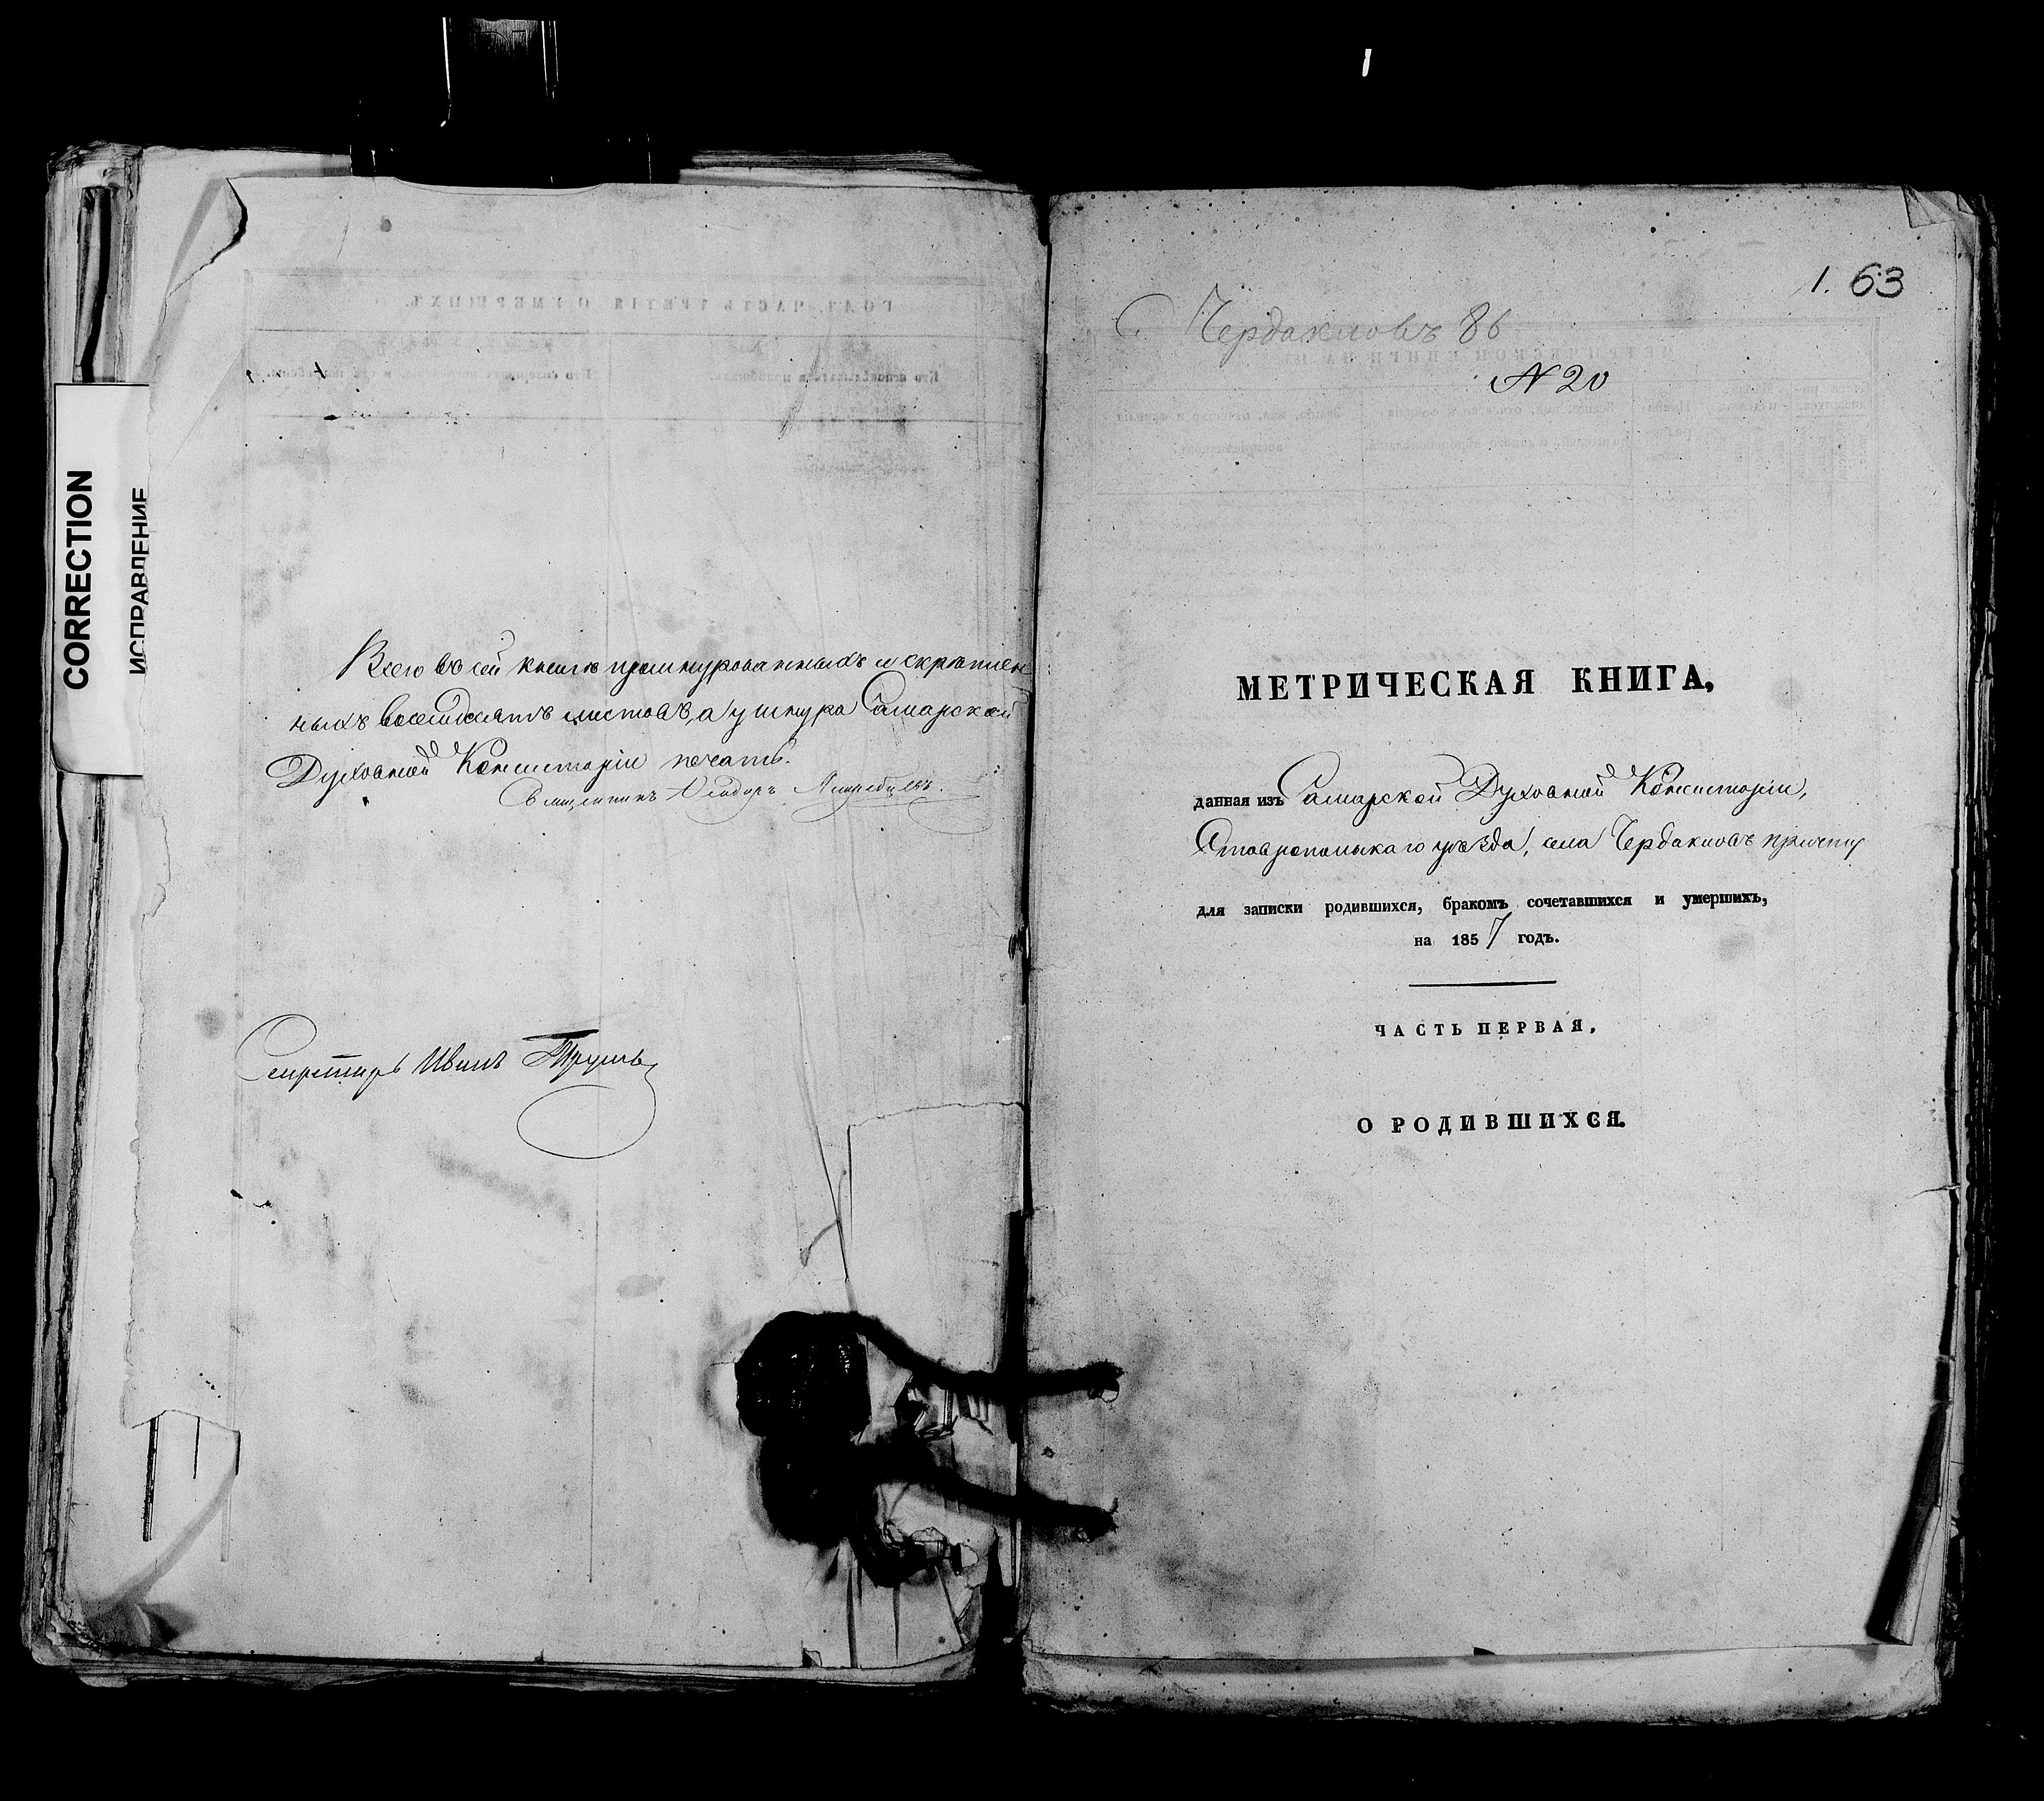 CORRECTION
ИСПРАВЛЕНИЕ
Всего въ сей книгѣ прошнурованныхъ и скрѣплен
ныхъ восемдесятъ листовъ, а у шнура Самарской
Духовной Консисторіи печать.
Священникъ Ѳеодоръ
Секретарь Иванъ
1. 63
С. Чердакловъ 86
N 20
МЕТРИЧЕСКАЯ КНИГА,
данная изъ Самарской Духовной Консисторіи,
Ставропольскаго уѣзда, села Чердакловъ причту
для записки родившихся, бракомъ сочетавшихся и умершихъ,
на 1857 годъ.
ЧАСТЬ ПЕРВАЯ,
О РОДИВШИХСЯ.